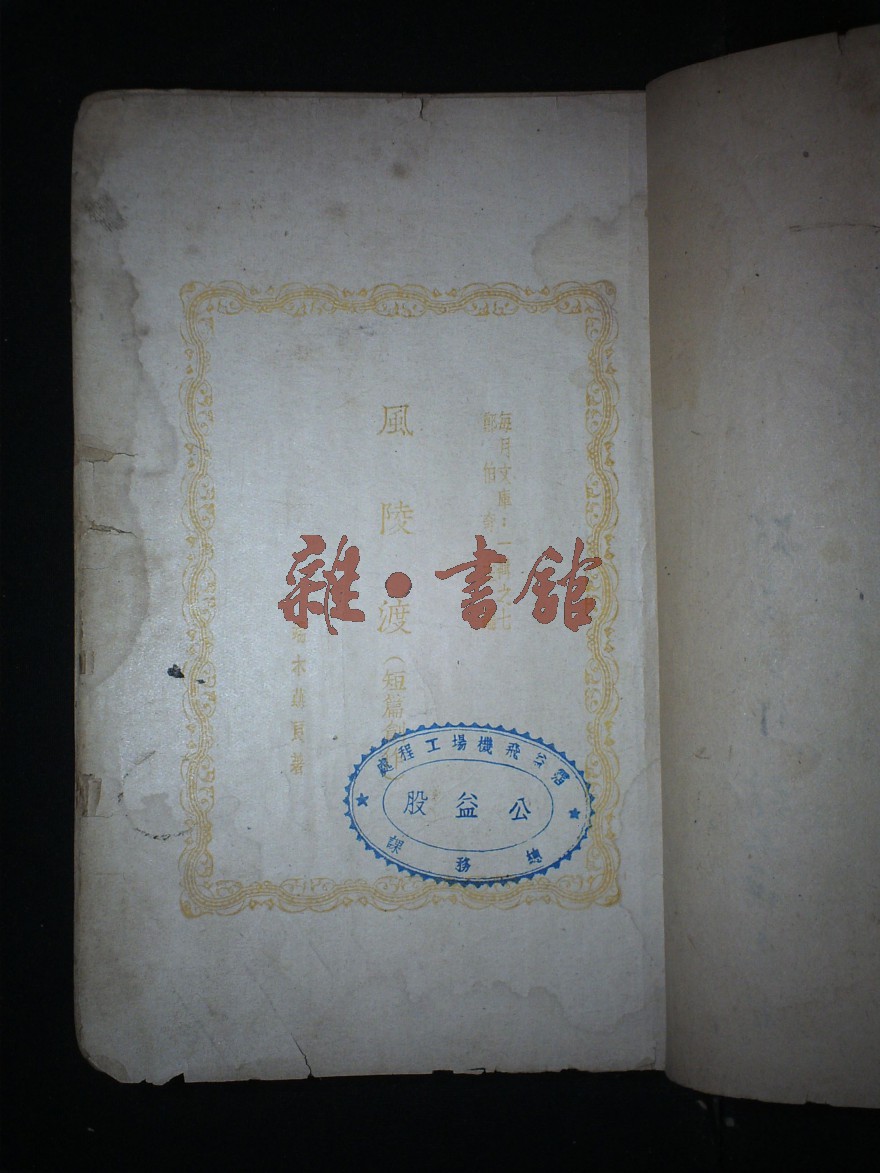 每月文庫：一輯之七
鄭伯奇
風陵渡（短篇創
端木蕻良著
雜·書館
霑益飛機場工程處
公益股
總務課